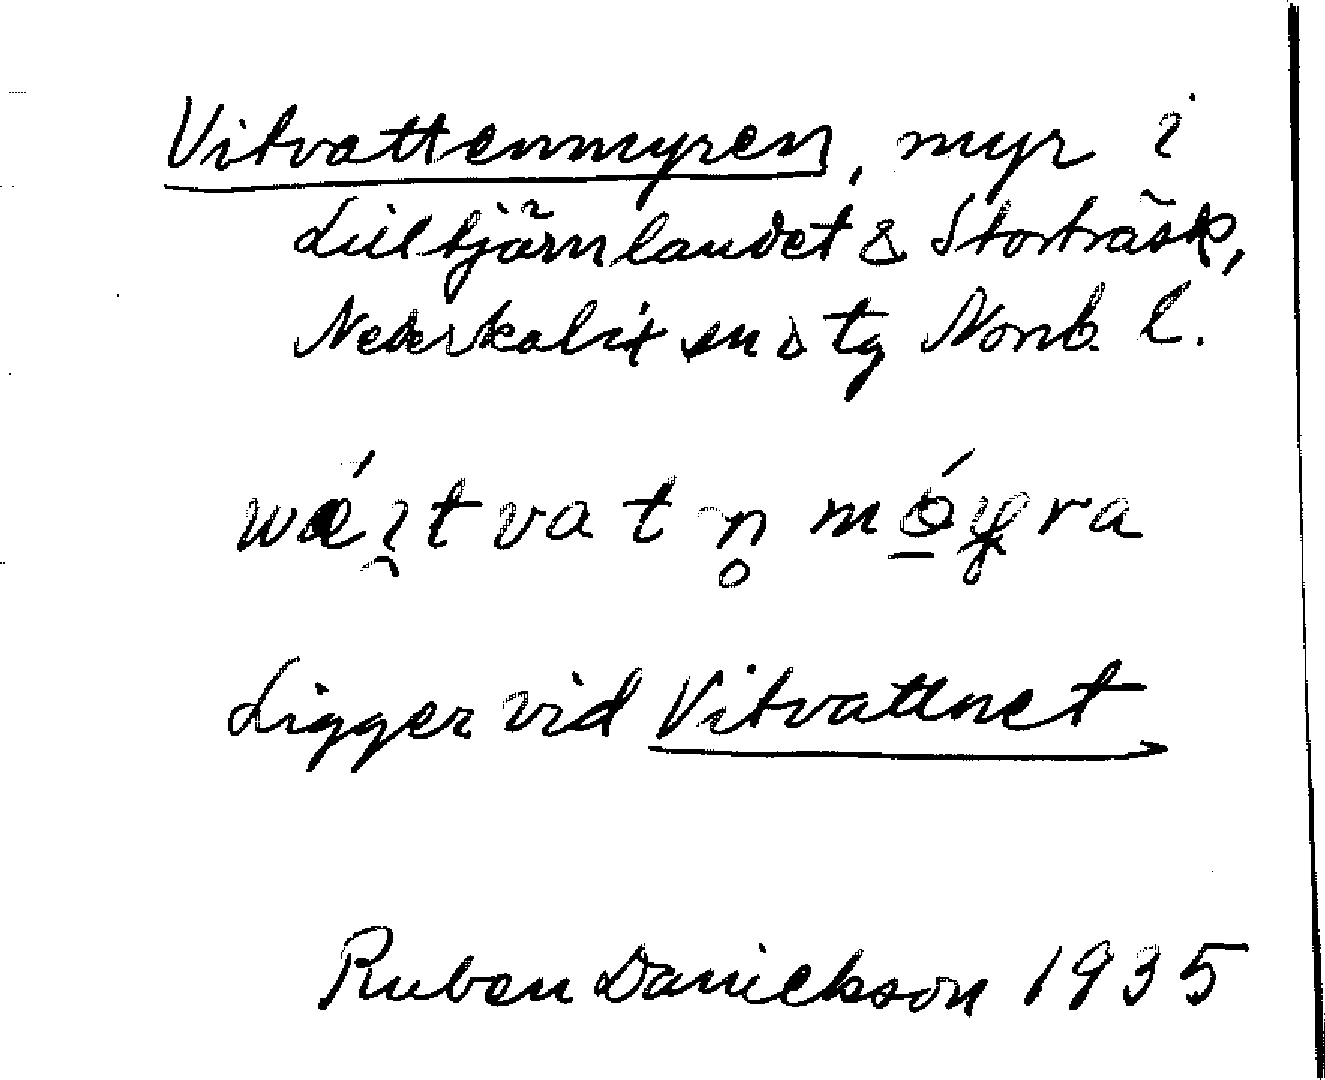 Vitvattenmyren, myr i
Lilltjärnlandet & Storträsk,
Nederkalix sn o tg Norrb. l.
mǫ́y̨ra
Ligger vid Vitvattnet
Ruben Danielsson 1935